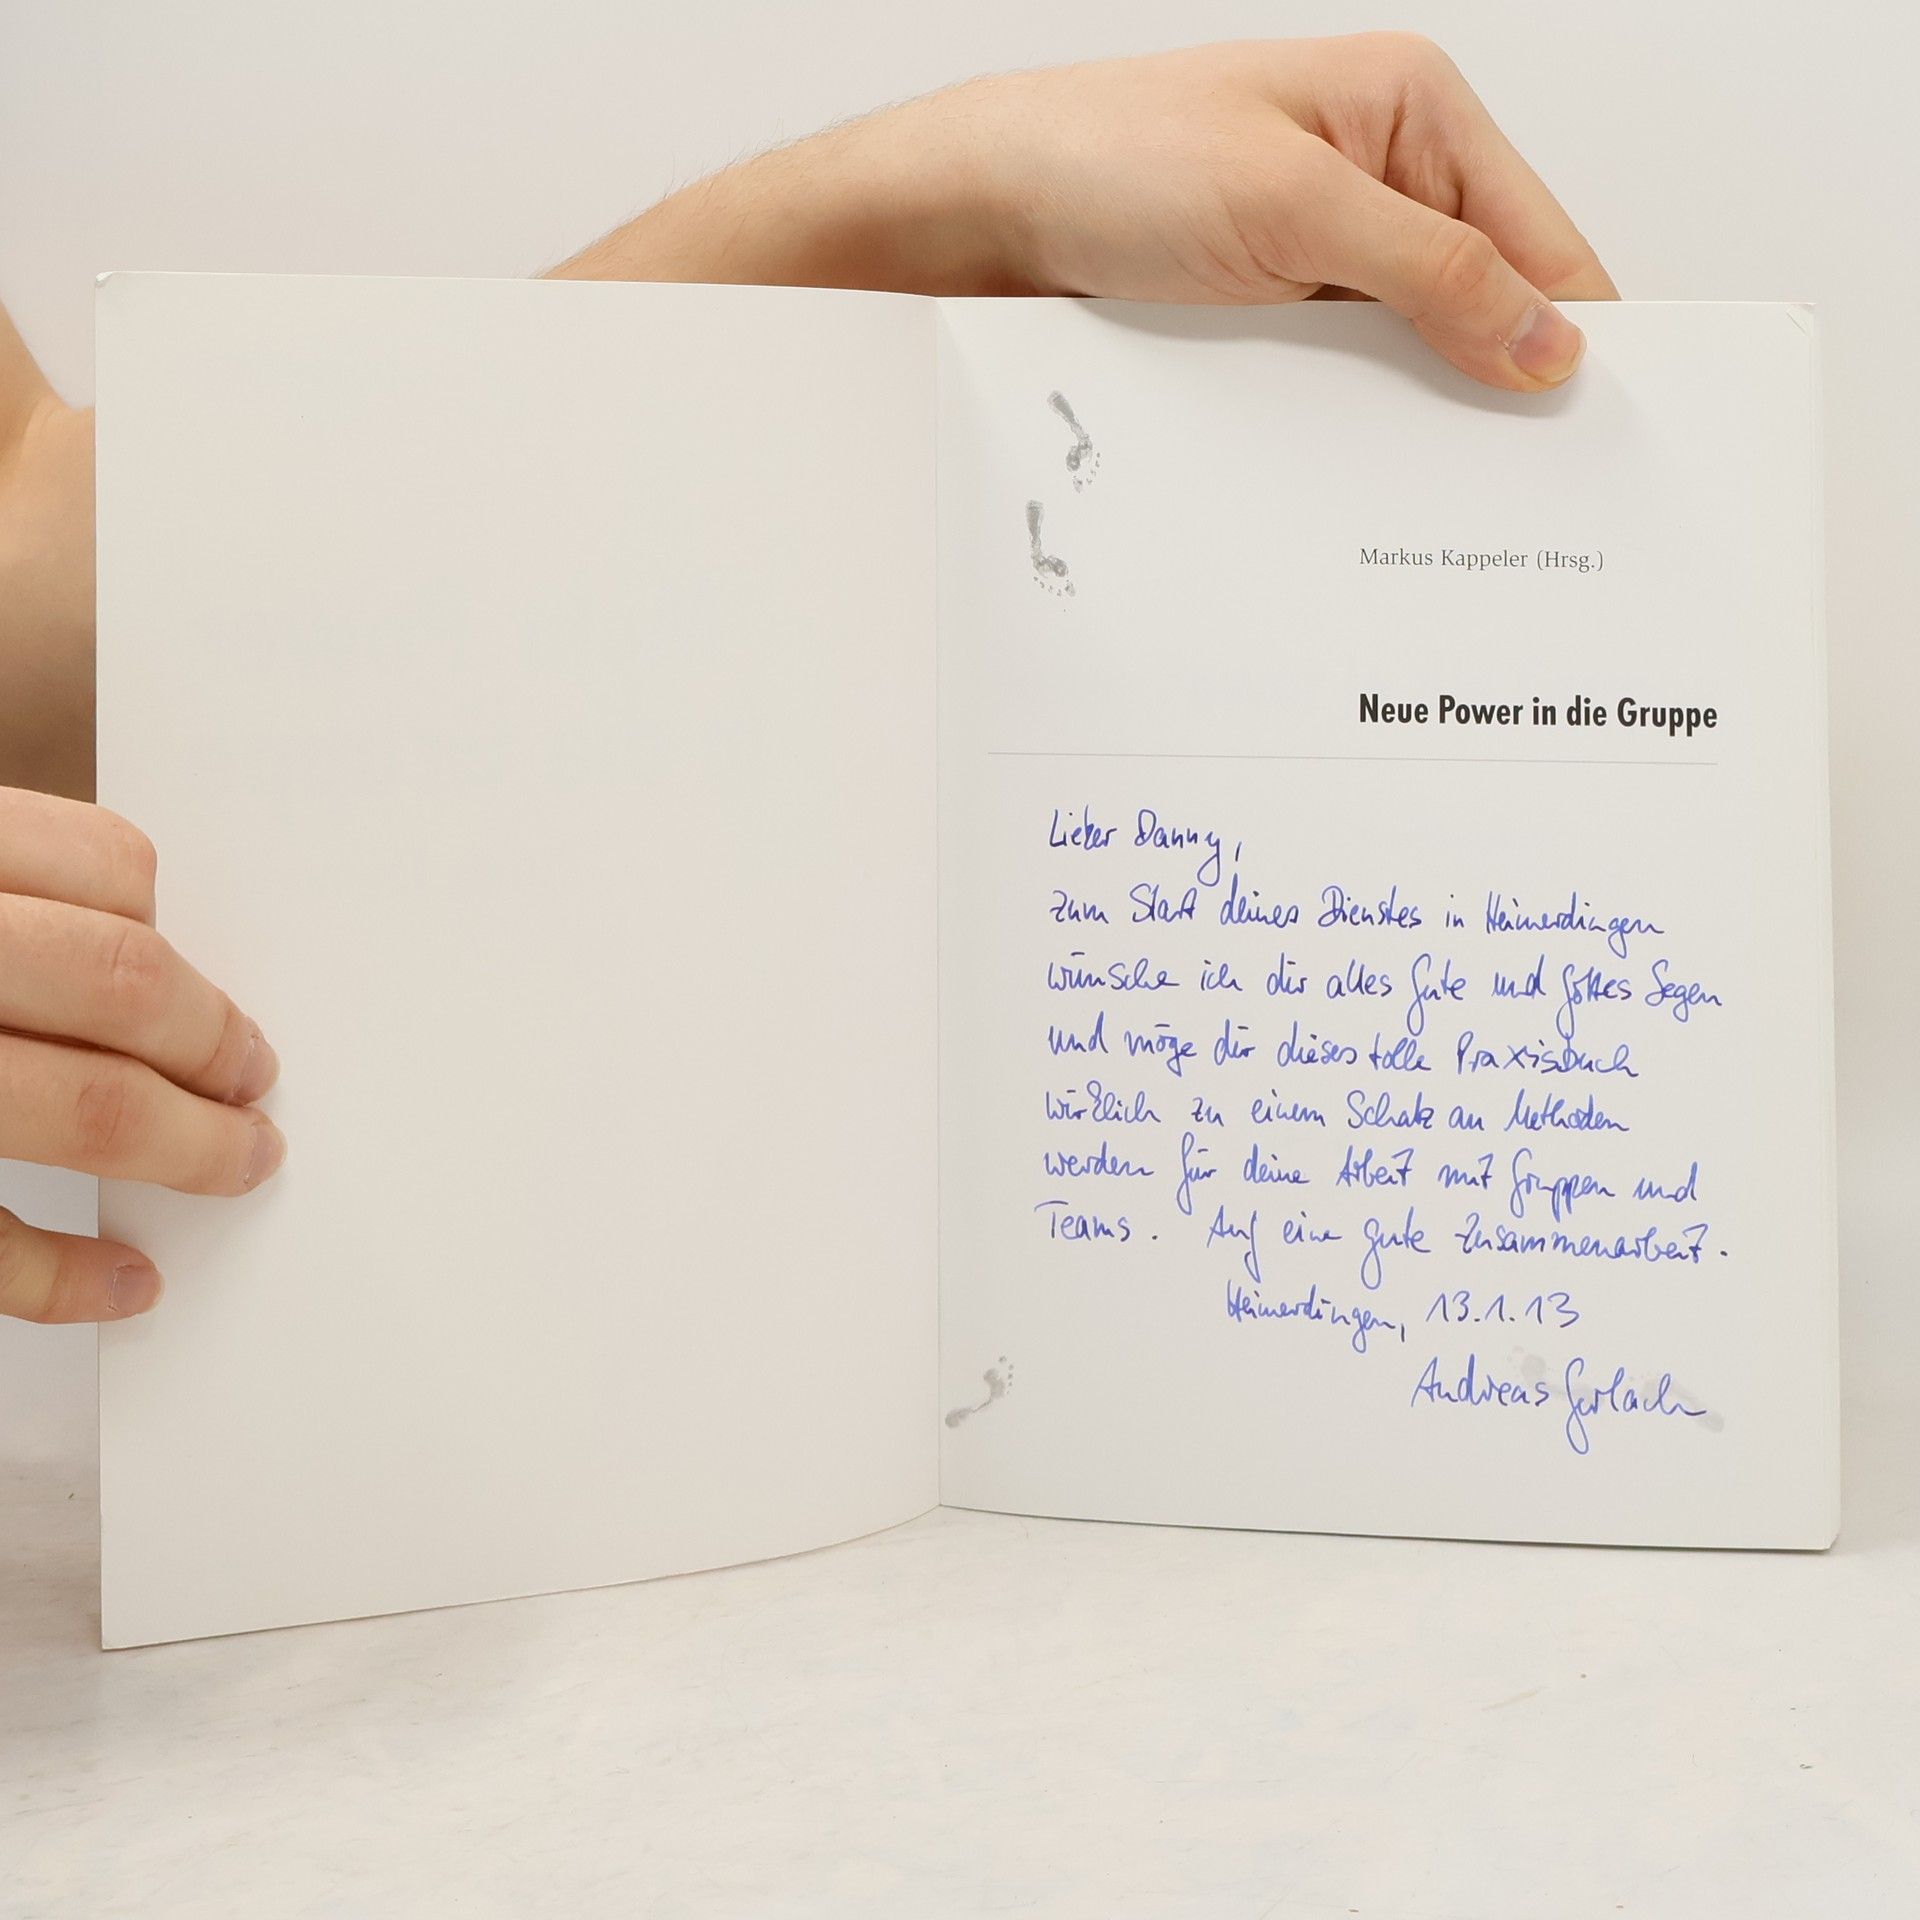 Markus Kappeler (Hrsg.)
Neue Power in die Gruppe
Lieber Danny,
zum Start deines Dienstes in Heimerdingen
wünsche ich dir alles Gute und Gottes Segen
und möge dir dieses tolle Praxisbuch
wirklich zu einem Schatz an Methoden
werden für deine Arbeit mit Gruppen und
Teams. Auf eine gute Zusammenarbeit.
Heimerdingen, 13.1.13
Andreas Gerlach